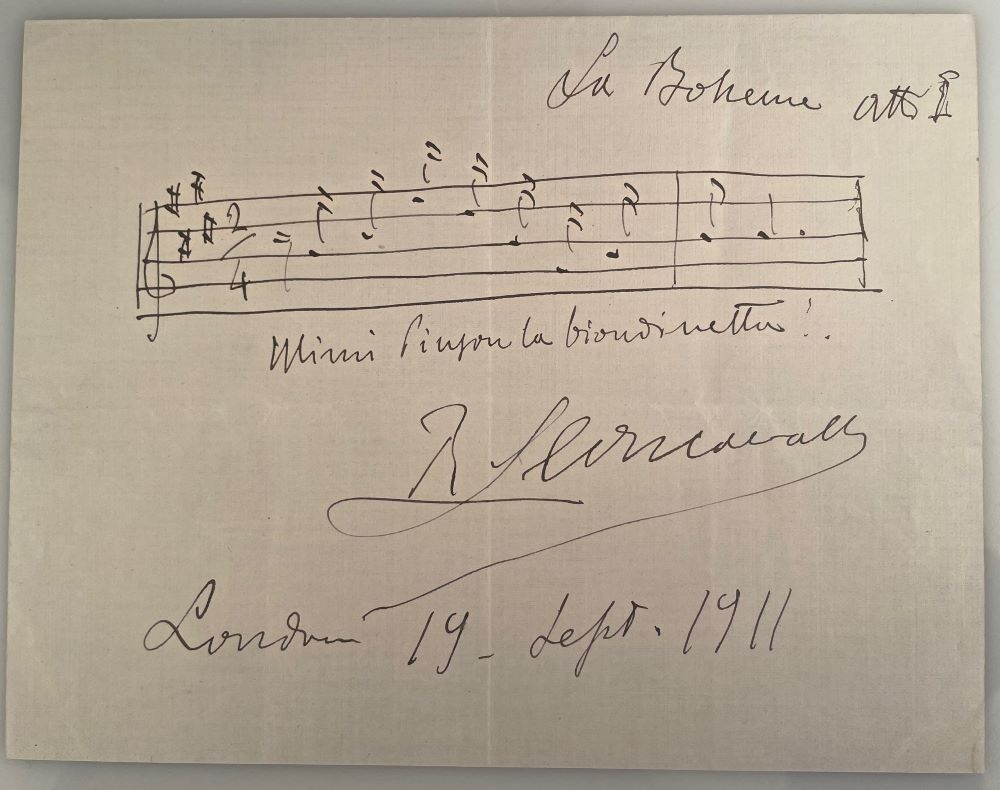 La Boheme atto I
2/4
Mimi Pinson la biondinetta!.
R Leoncavallo
London 19 - Sept. 1911